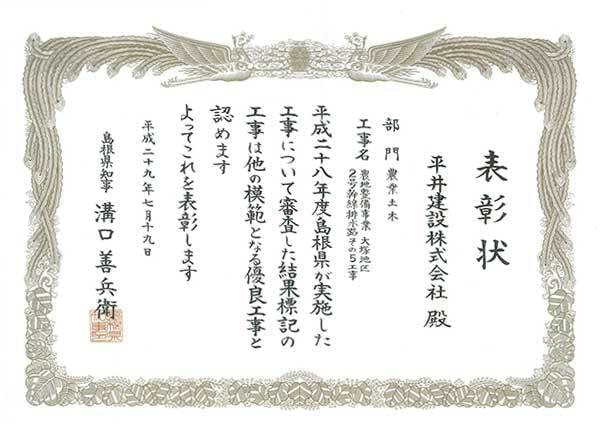 表彰状
平井建設株式会社 殿
部門 農業土木
工事名 農地整備事業 大塚地区
2号幹線排水路その5工事
平成二十八年度島根県が実施した
工事について審査した結果標記の
工事は他の模範となる優良工事と
認めます
よってこれを表彰します
平成二十九年七月十九日
島根県知事 溝口善兵衛